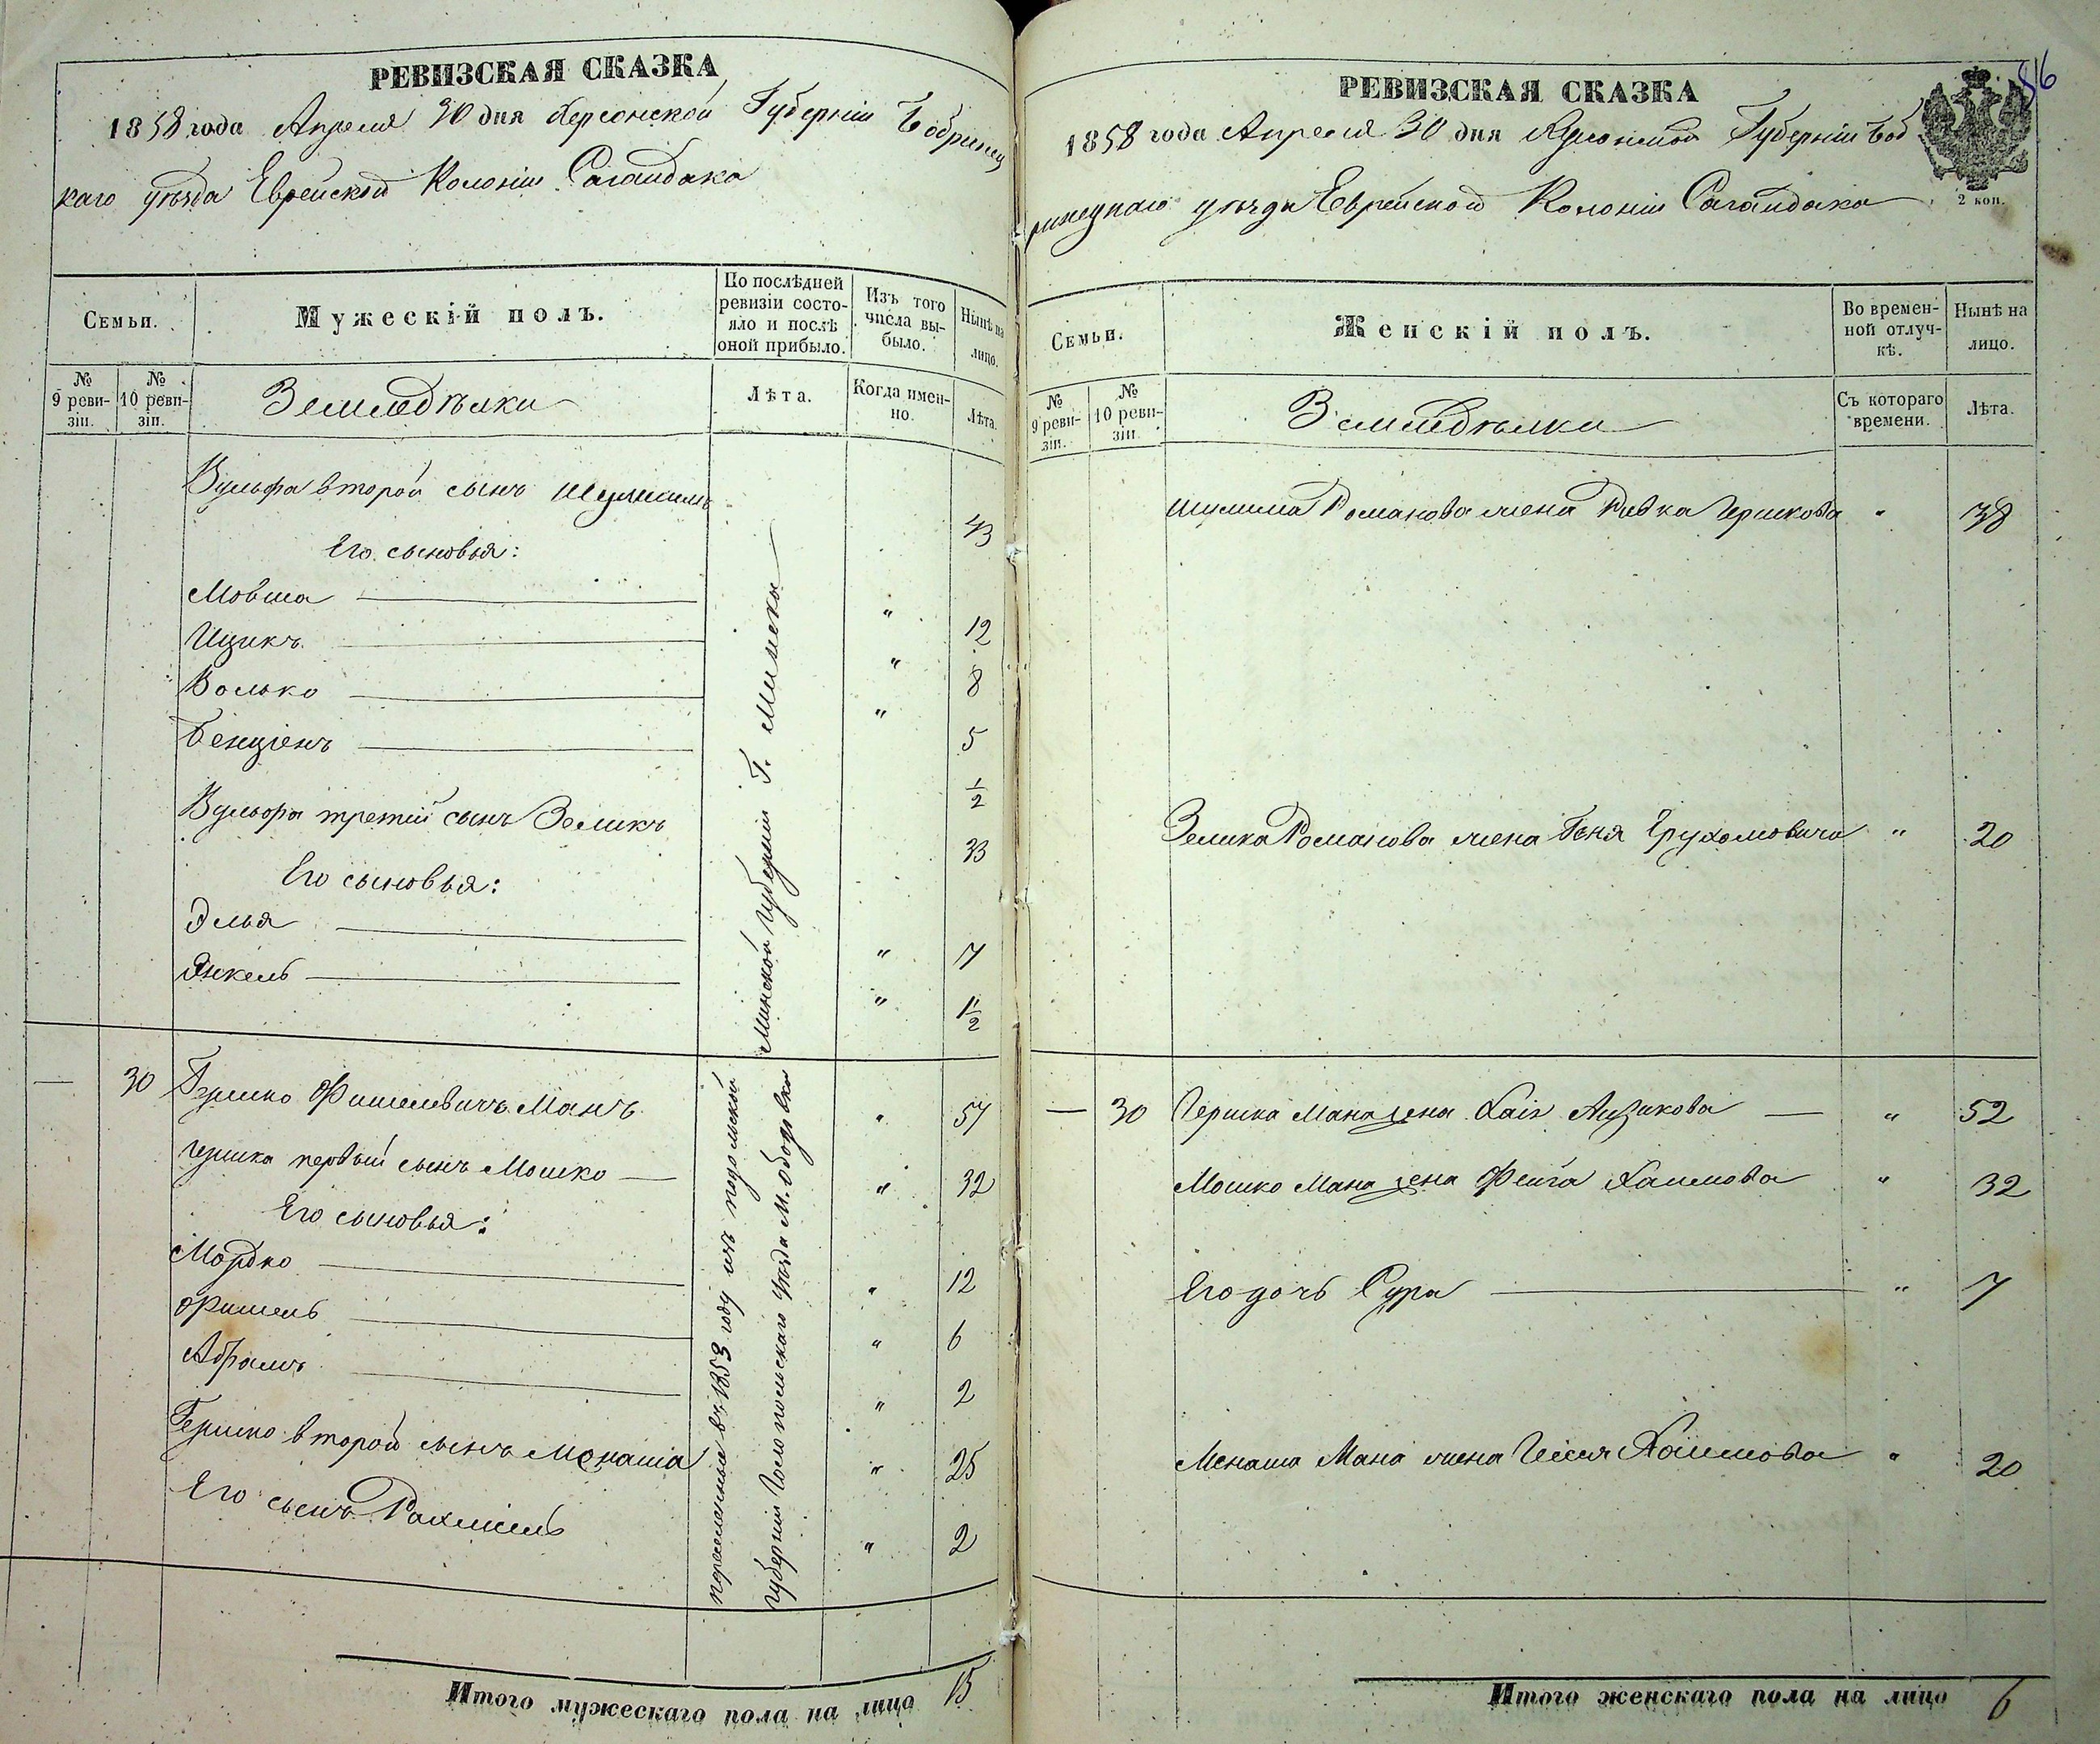 РЕВИЗСКАЯ СКАЗКА
1858 года Апреля 30 дня Херсонской Губерніи Бобринец
каго уѣзда Еврейской Колоніи Сагайдака
Семьи.
Мужескій полъ.
По послѣдней ревизіи состо-
яло и послѣ оной прибыло.
Изъ того числа вы-
было.
Нынѣ на лицо.
№ 9 реви-
зіи.
№ 10 реви-
зіи.
Земледѣльцы
Лѣта.
Когда имен-
но.
Лѣта.
Вульфа второй сынъ Шулимъ 43
Его сыновья:
Мовша " 12
Ицикъ " 8
Волько " 5
Бенціенъ 1/2
Вульфа третій сынъ Зеликъ 33
Его сыновья:
Элья " 7
Янкель " 1 1/2
Минской губерніи Г. Минска
— 30 Гершко Фишелевичъ Манъ " 57
Гершка первый сынъ Мошко — " 32
Его сыновья:
Мордко " 12
Фишель " 6
Абрамъ " 2
Гершко второй сынъ Менаша " 25
Его сынъ Рахмиель " 2
переселенные въ 1853 году изъ подольской
губерніи уѣзда М. Ободовки
Итого мужескаго пола на лицо 15
86
РЕВИЗСКАЯ СКАЗКА
1858 года Апреля 30 дня Херсонской Губерніи Боб
ринецкаго уѣзда Еврейской Колоніи Сагайдака
2 коп.
Семьи.
Женскій полъ.
Во времен-
ной отлуч-
кѣ.
Нынѣ на лицо.
№ 9 реви-
зіи.
№ 10 реви-
зіи
Съ котораго времени.
Лѣта.
Шулима Романова жена Ривка Гершкова " 38
Зелика Романова жена Геня " 20
— 30 Гершка Мана жена Хая Айзикова — " 52
Мошко Мана жена Фейга Хаимова " 32
Его дочь Сура " 7
Менаша Мана жена Хаимова " 20
Итого женскаго пола на лицо 6